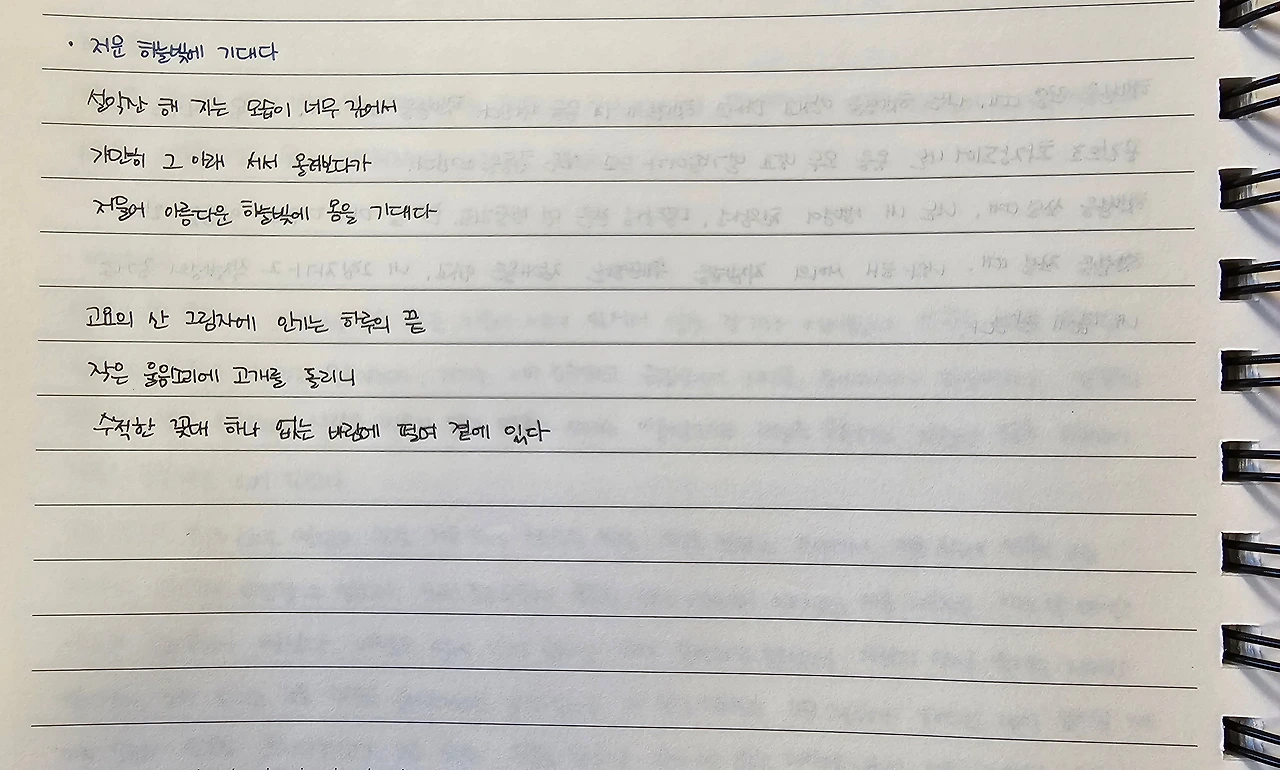 · 저문 하늘빛에 기대다
설악산 해 지는 모습이 너무 깊어서
가만히 그 아래 서서 올려보다가
저물어 아름다운 하늘빛에 몸을 기대다
고요의 산 그림자에 안기는 하루의 끝
작은 울음소리에 고개를 돌리니
수척한 꽃대 하나 없는 바람에 떨며 곁에 있다